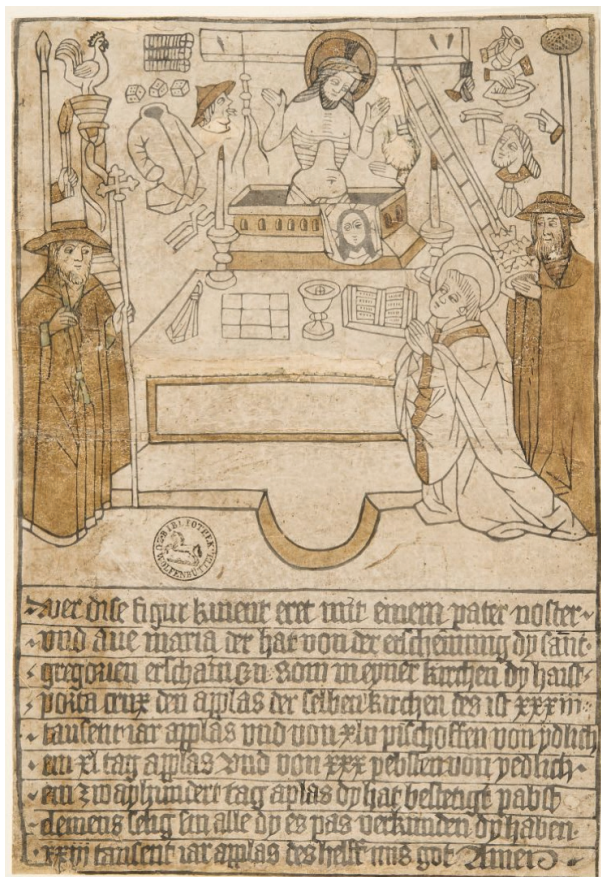 BIBLIOTHEK WOLFENBÜTTEL
wer dise figur knient eret mit einem pater noster
vnd aue maria der hat von der erscheinung dy sant
gregorien erschain zu rom in eyner kirchen dy haist
porta crux den applas der selben kirchen des ist xxxiii
tausent iar applas vnd von xlv pischoffen von ydlich
em xl tag applas vnd von xxx pebsten von yedlich
em zwayhundert tag aplas dy hat bestetigt pabst
clemens selig sin alle dy es pas verkunden dy haben
xxiij tausent iar applas des helff uns got Amen